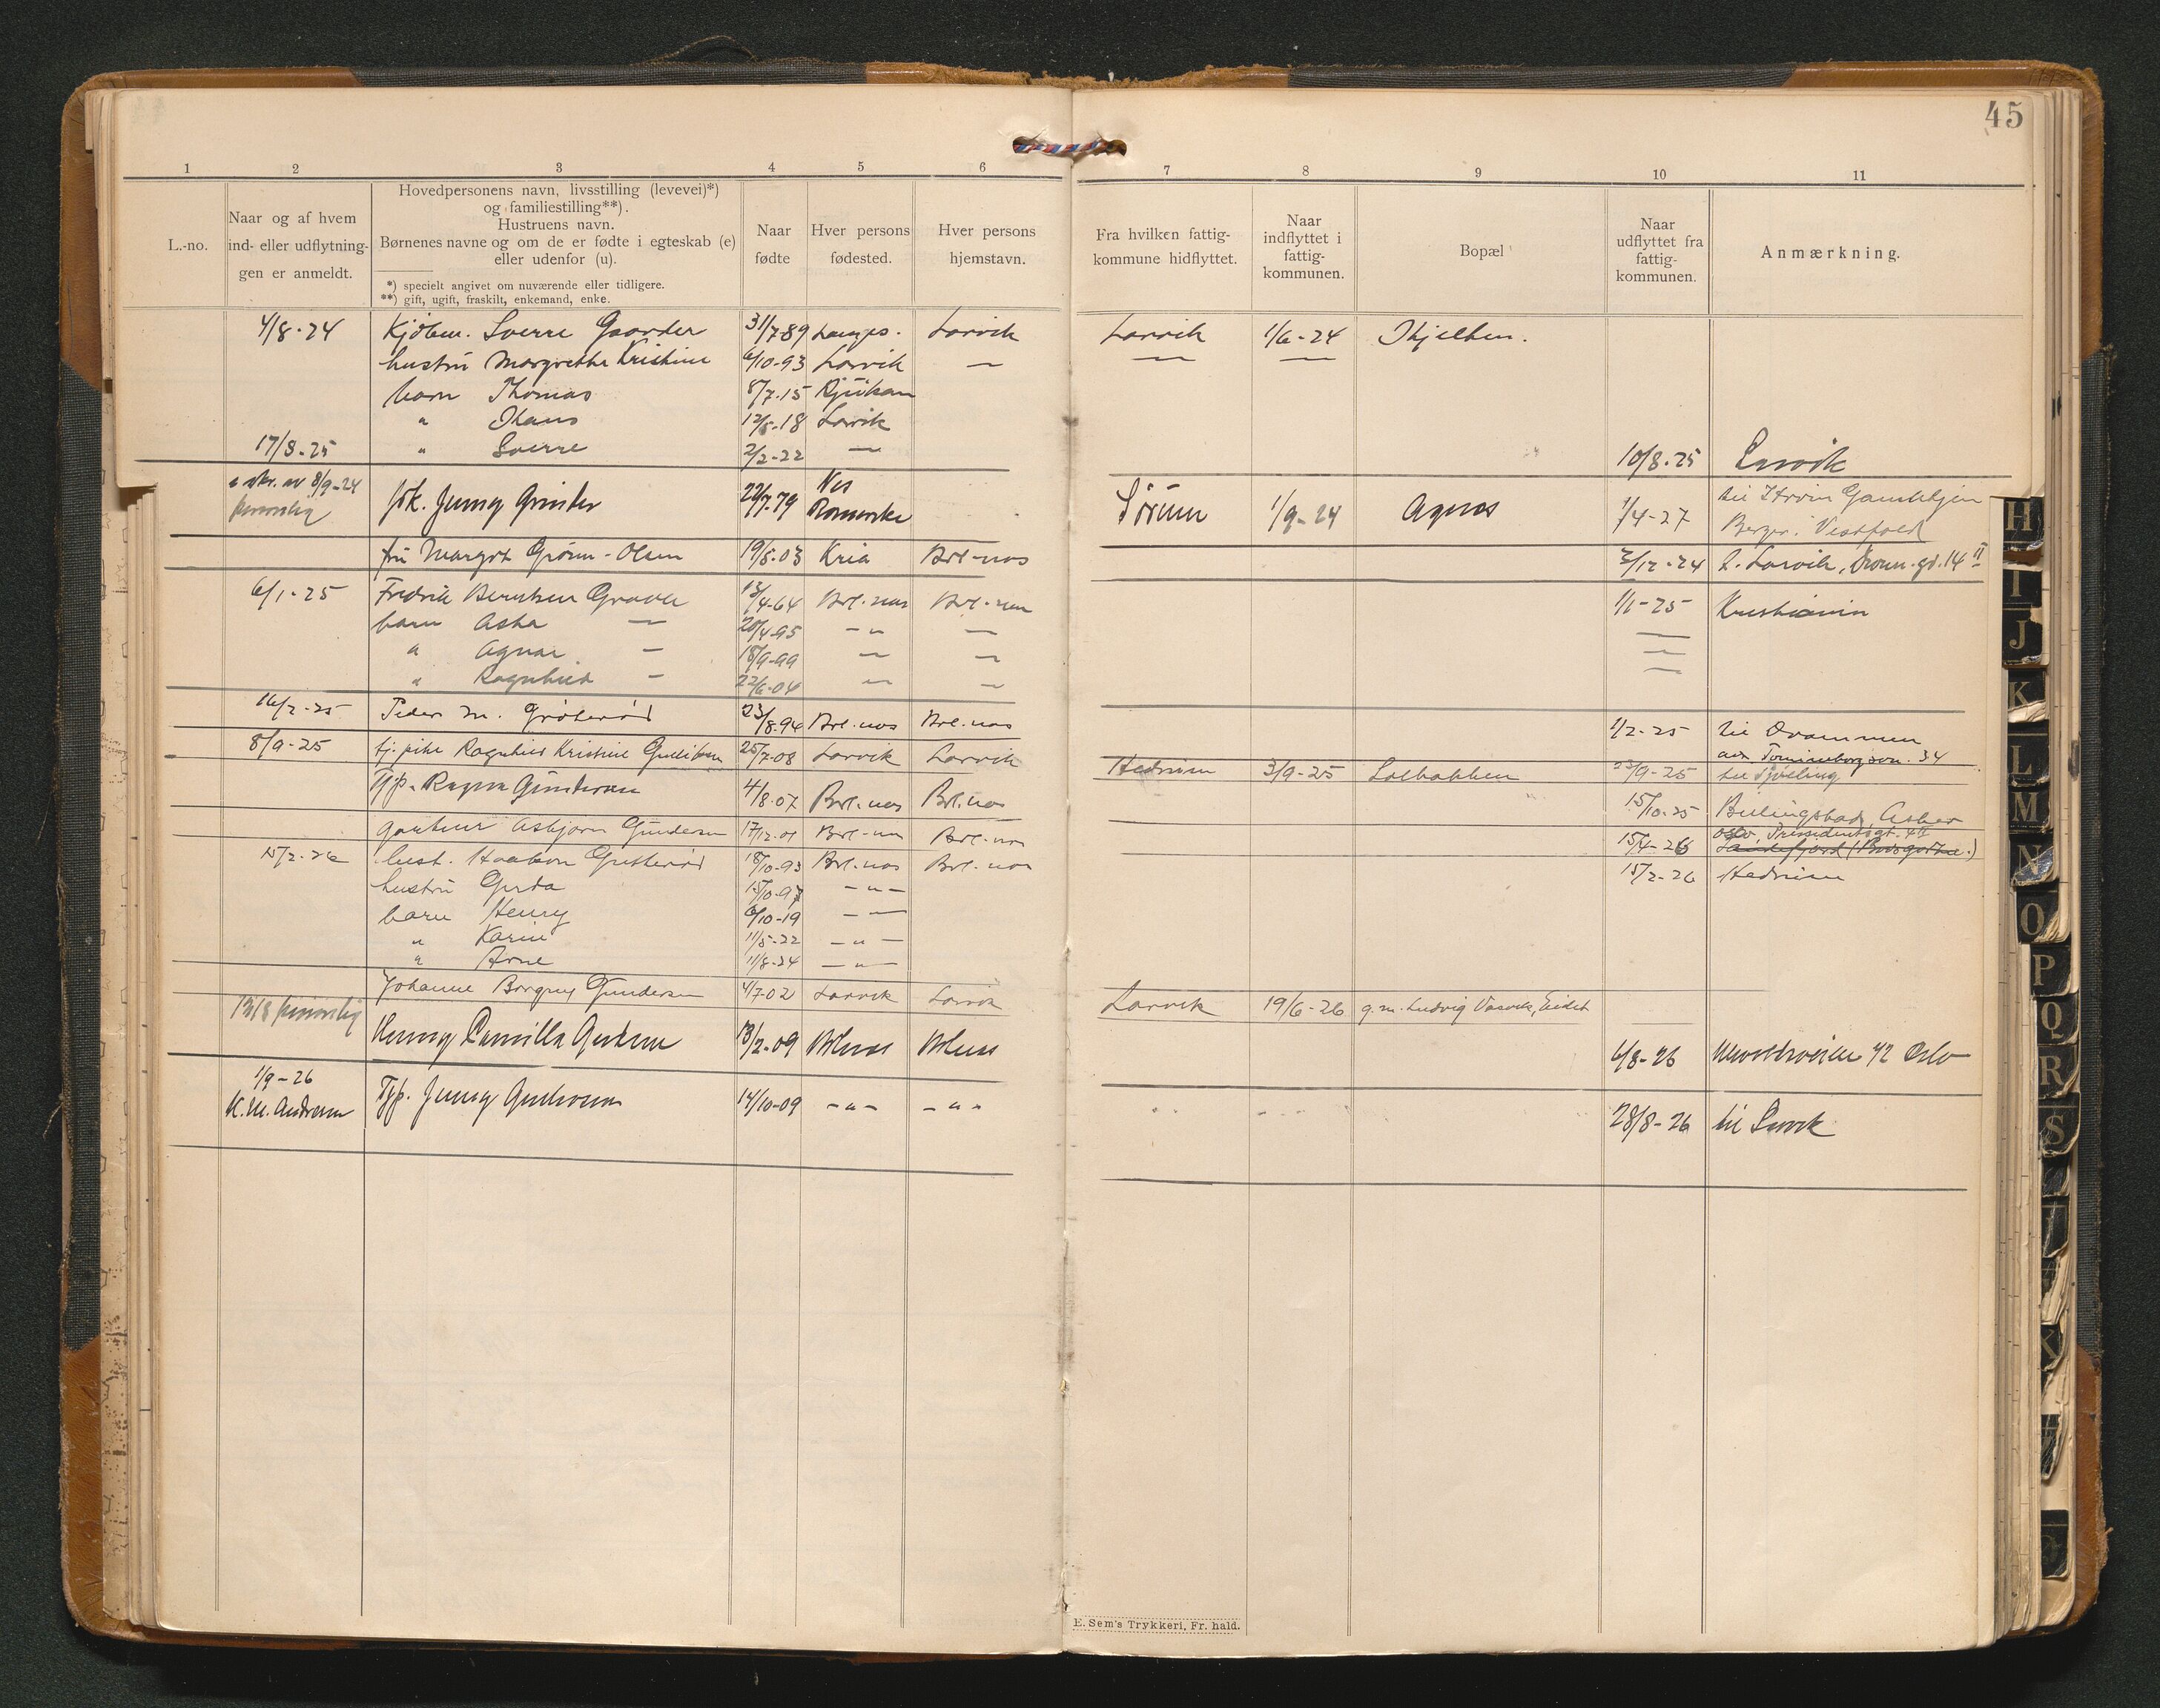 45
1 2 3 4 5 6 7 8 9 10 11
L.-no.
Naar og af hvem
ind- eller udflytnin-
gen er anmeldt.
Hovedpersonens navn, livsstilling (levevei)*)
og familiestilling**).
Hustruens navn.
Børnenes navne og om de er fødte i egteskab (e)
eller udenfor (u).
*) specielt angivet om nuværende eller tidligere.
**) gift, ugift, fraskilt, enkemand, enke.
Naar
fødte
Hver persons
fødested.
Hver persons
hjemstavn.
Fra hvilken fattig-
kommune hidflyttet.
Naar
indflyttet i
fattig-
kommunen.
Bopæl
Naar
udflyttet fra
fattig-
kommunen.
Anmærkning.
4/8-24 Kjøbm. Sverre Gaarder 31/7-89 Larvik Larvik 1/6-24
hustru Margrethe Kristine 6/10-93 Larvik —
barn Thomas 8/7-15 Rjukan
" Hans 12/5-18 Larvik
17/8-25 " Sverre 2/2-22 — 10/8-25 Larvik
8/9-24 frk. Jenny Grinder 22/7-79 Nes Romerike Sörum 1/9-24 Agnes 1/4-27 til
Berger. Vestfold
fru Margot Grønn-Olsen 19/5-03 Kria Brl-nes 2/12-24 Larvik, Dronn.gt. 14 II
6/1-25 Fredrik Berntsen Gravle 13/4-64 Brl-nes Brl-nes 1/1-25 Kristiania
barn Asta — 20/4-95 — " — —
" Agnar — 18/9-99 — —
" Ragnhild — 22/6-04 — —
16/2-25 Peder M. Grøterød 23/8-94 Brl.nes Brl.nes 1/2-25 til Drammen
8/9-25 tj.pike Ragnhild Kristine 25/7-08 Larvik Larvik Hedrum 3/9-25 23/9-25 til Tjølling
Tjp. Ragna Gundersen 4/8-07 Brl.nes Brl.nes 15/10-25 Billingstad, Asker
gartner Asbjørn Gundersen 17/12-01 Brl-nes Brl-nes 15/4-26 Oslo Pressidentsgt.
15/2-26 Haakon Grøtterød 18/10-93 Brl.nes Brl.nes 15/2-26 Hedrum
hustru Gerda 15/10-97 — " —
barn Henry 6/10-19 — —
" Karin 11/5-22 — " —
" Arne 11/8-24 — " —
Johanne Borgny Gundersen 4/7-02 Larvik Larvik Larvik 19/6-26 g.m. Ludvig Vasvik, Eidet
13/8 personlig
Henny Camilla 13/2-09 Brlnes Brlnes 6/8-26 42 Oslo
1/9-26
K. M. Andresen Tjp. Jenny Gundersen 14/10-09 — " — — " — 28/8-26 til Larvik
E. Sem's Trykkeri, Fr. hald.
H
I
J
K
L
M
N
O
P
Q
R
S